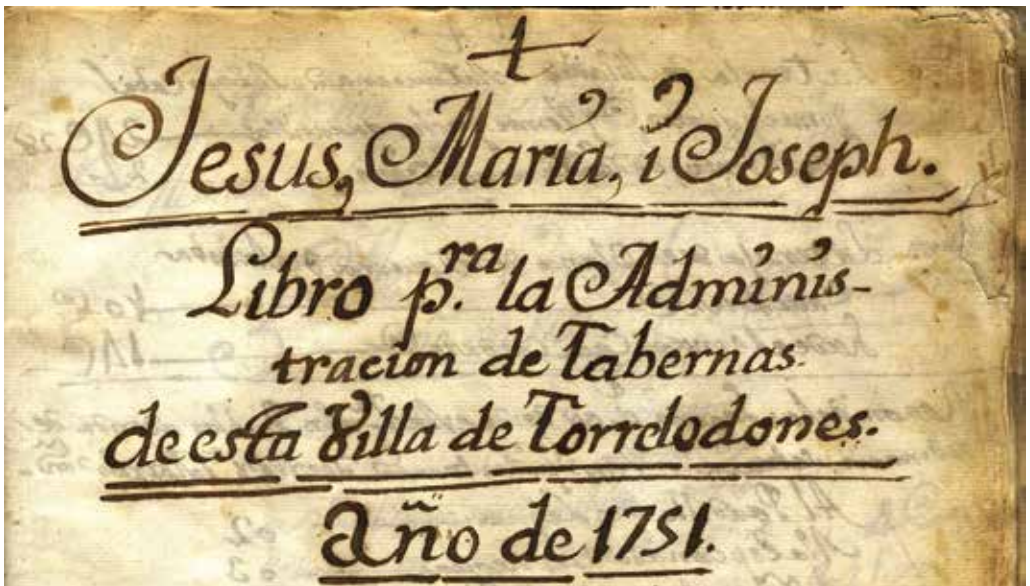 †
Jesus, Maria, i Joseph.
Libro p.ra la Adminis-
tracion de Tabernas
de esta Villa de Torrelodones.
Año de 1751.